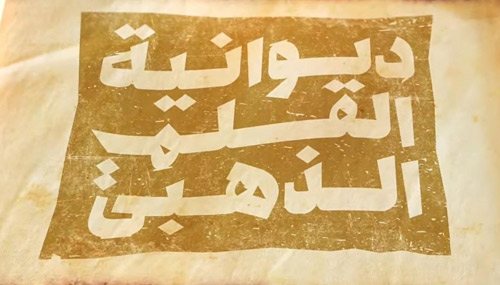 ديوانية
القلم
الذهبي